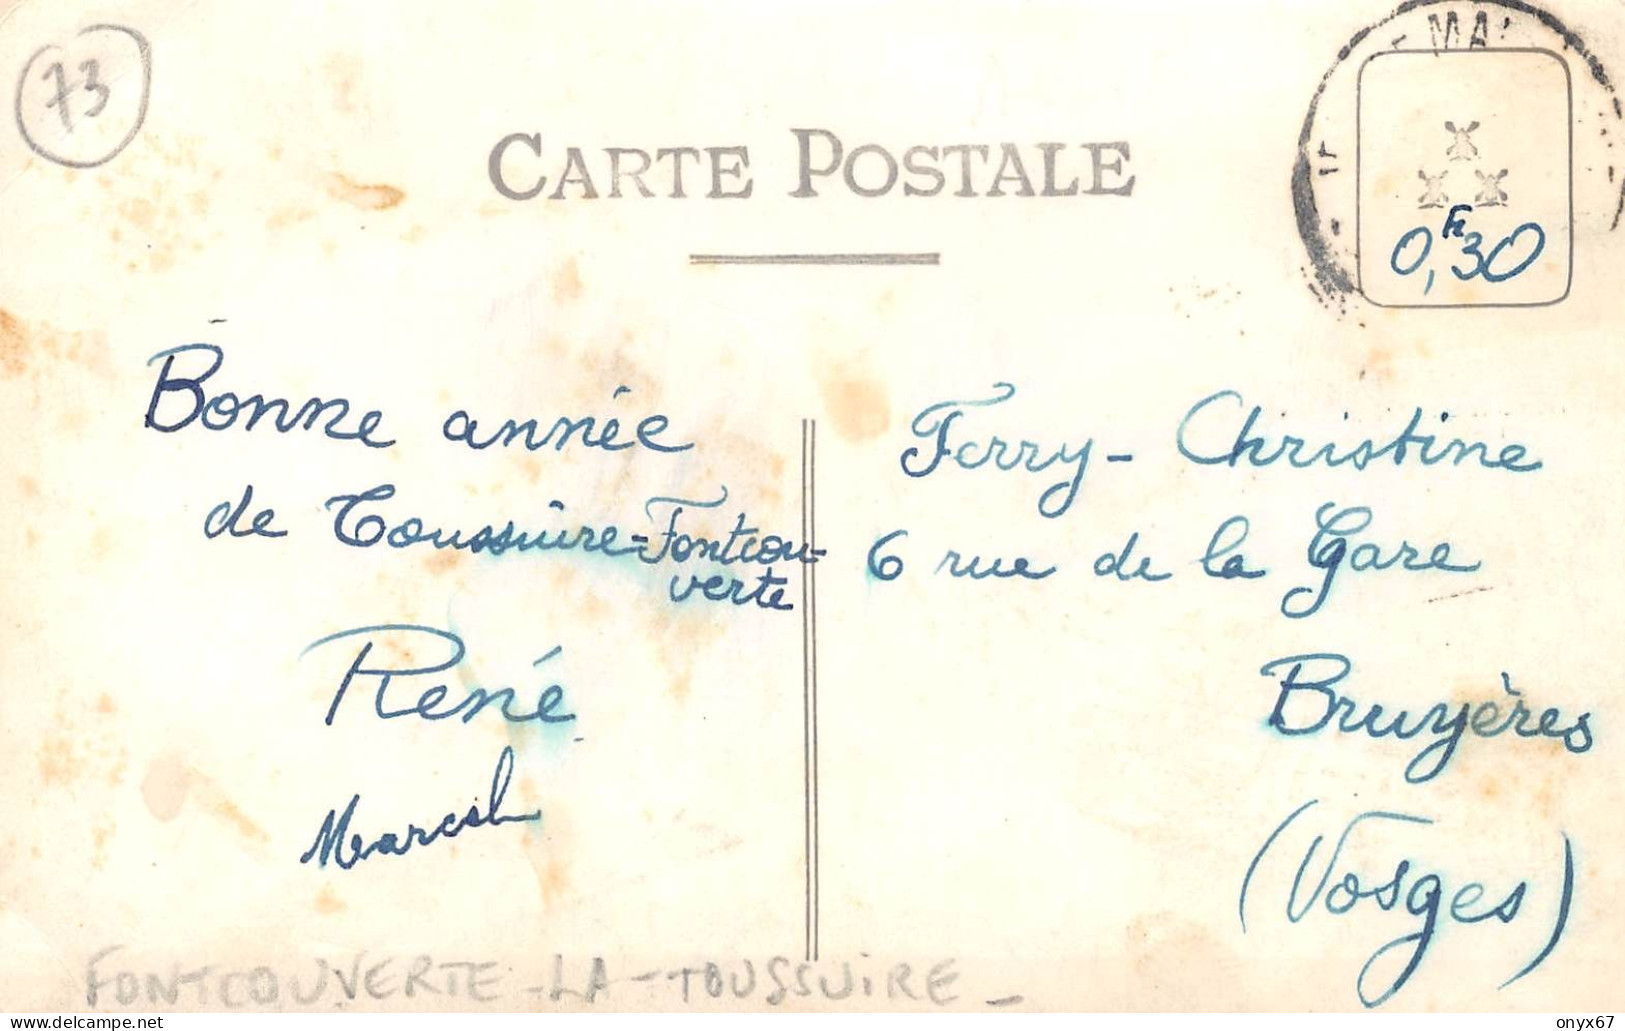 73
CARTE POSTALE
0,Fr30
Bonne année
de Toussuire-Fontcou-
verte
René
Marcel
Ferry - Christine
6 rue de la Gare
Bruyères
(Vosges)
FONTCOUVERTE - LA - TOUSSUIRE -
www.delcampe.net
onyx67